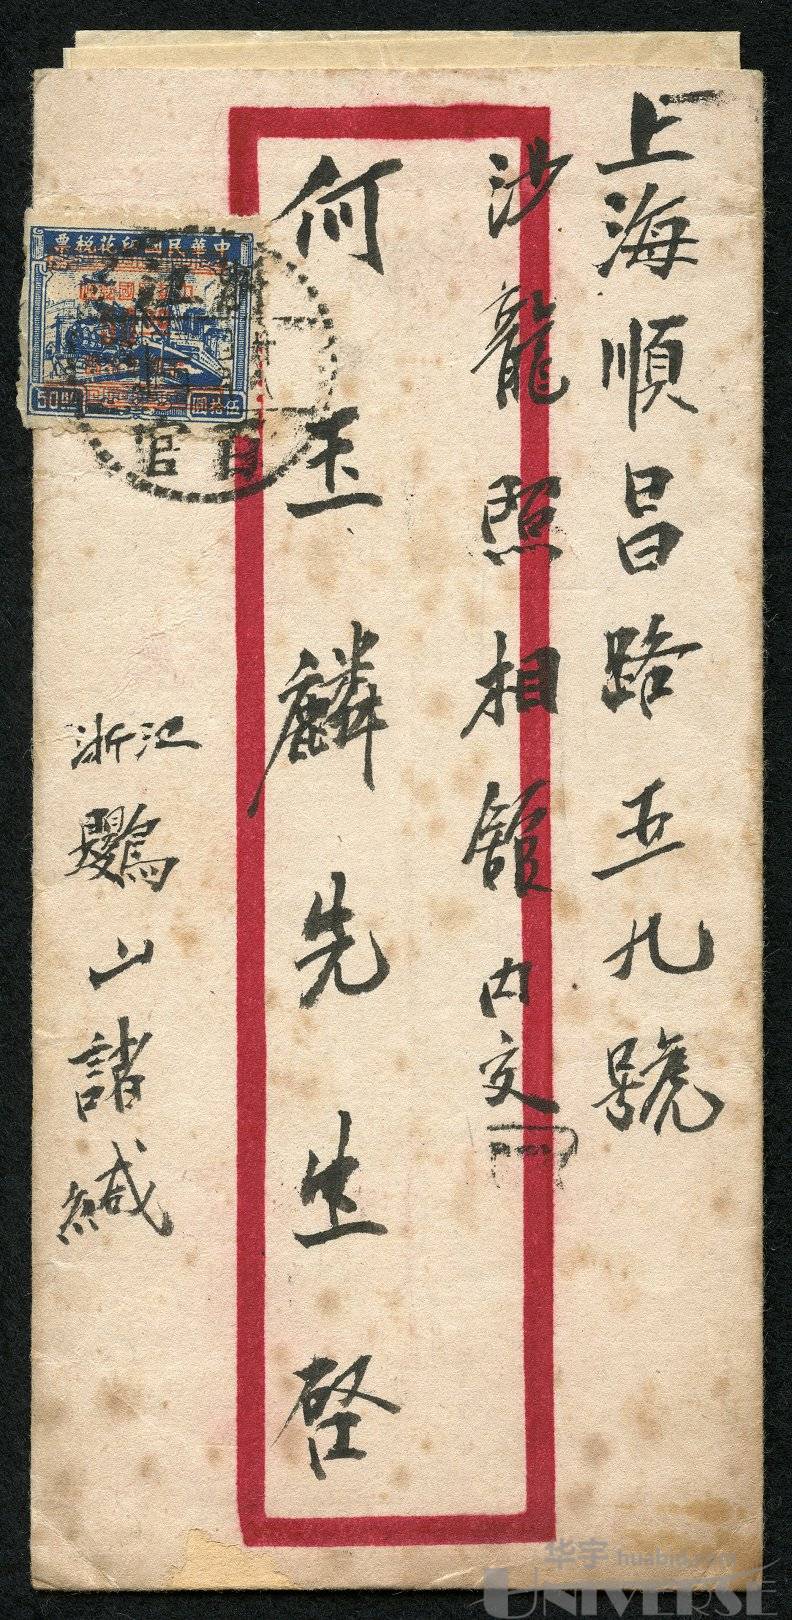 上海順昌路五九號
沙龍照相館內交
何玉麟先生啓
浙江
鸚山諸緘
中華民國印花稅票
50
伍拾圓
百官
华宇 huabid.com
UNIVERSE